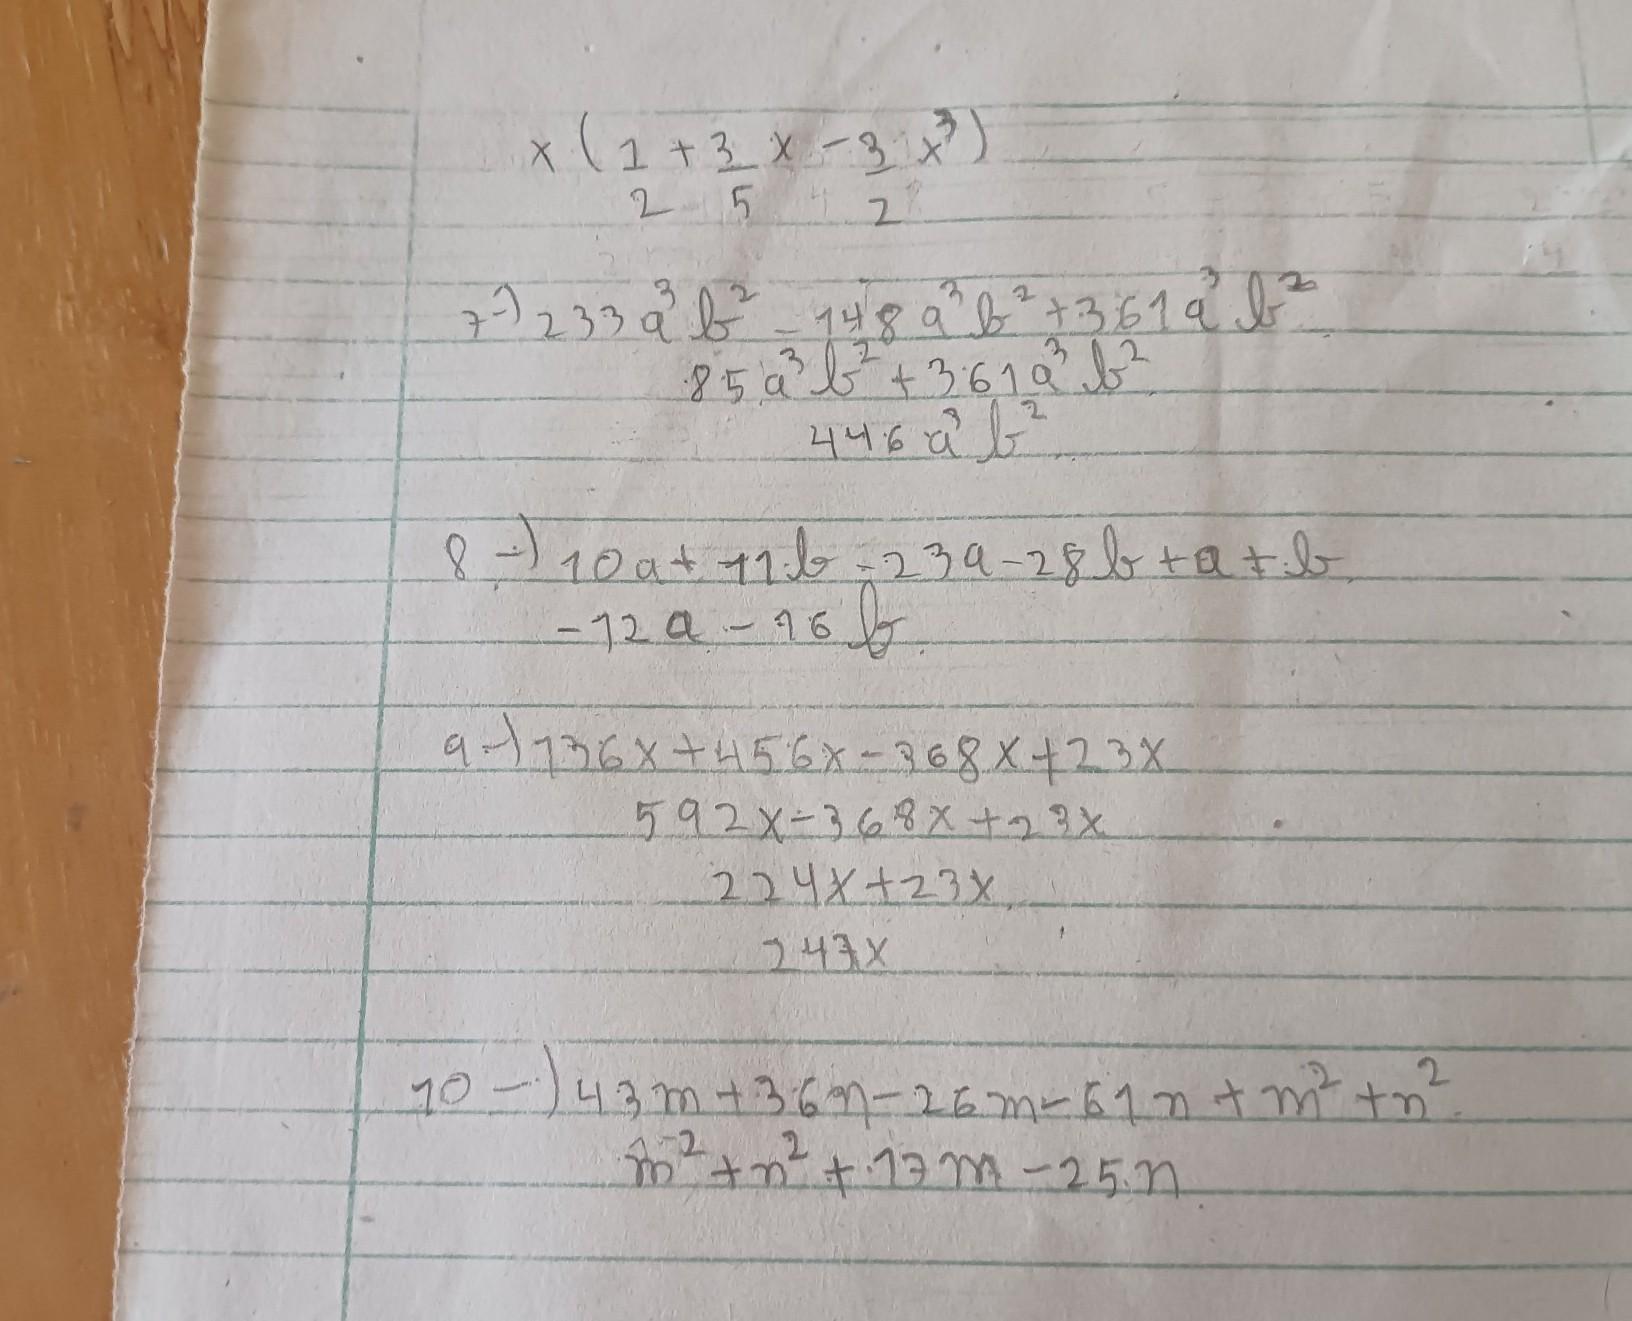 x(1/2 + 3/5 x - 3/2 x³)
7-) 233a³b² - 148a³b² + 361a³b²
85a³b² + 361a³b²
446a³b²
8-) 10a + 11b - 23a - 28b + a + b
-12a - 16b
9-) 136x + 456x - 368x + 23x
592x - 368x + 23x
224x + 23x
247x
10-) 43m + 36n - 26m - 61n + m² + n²
m² + n² + 17m - 25n